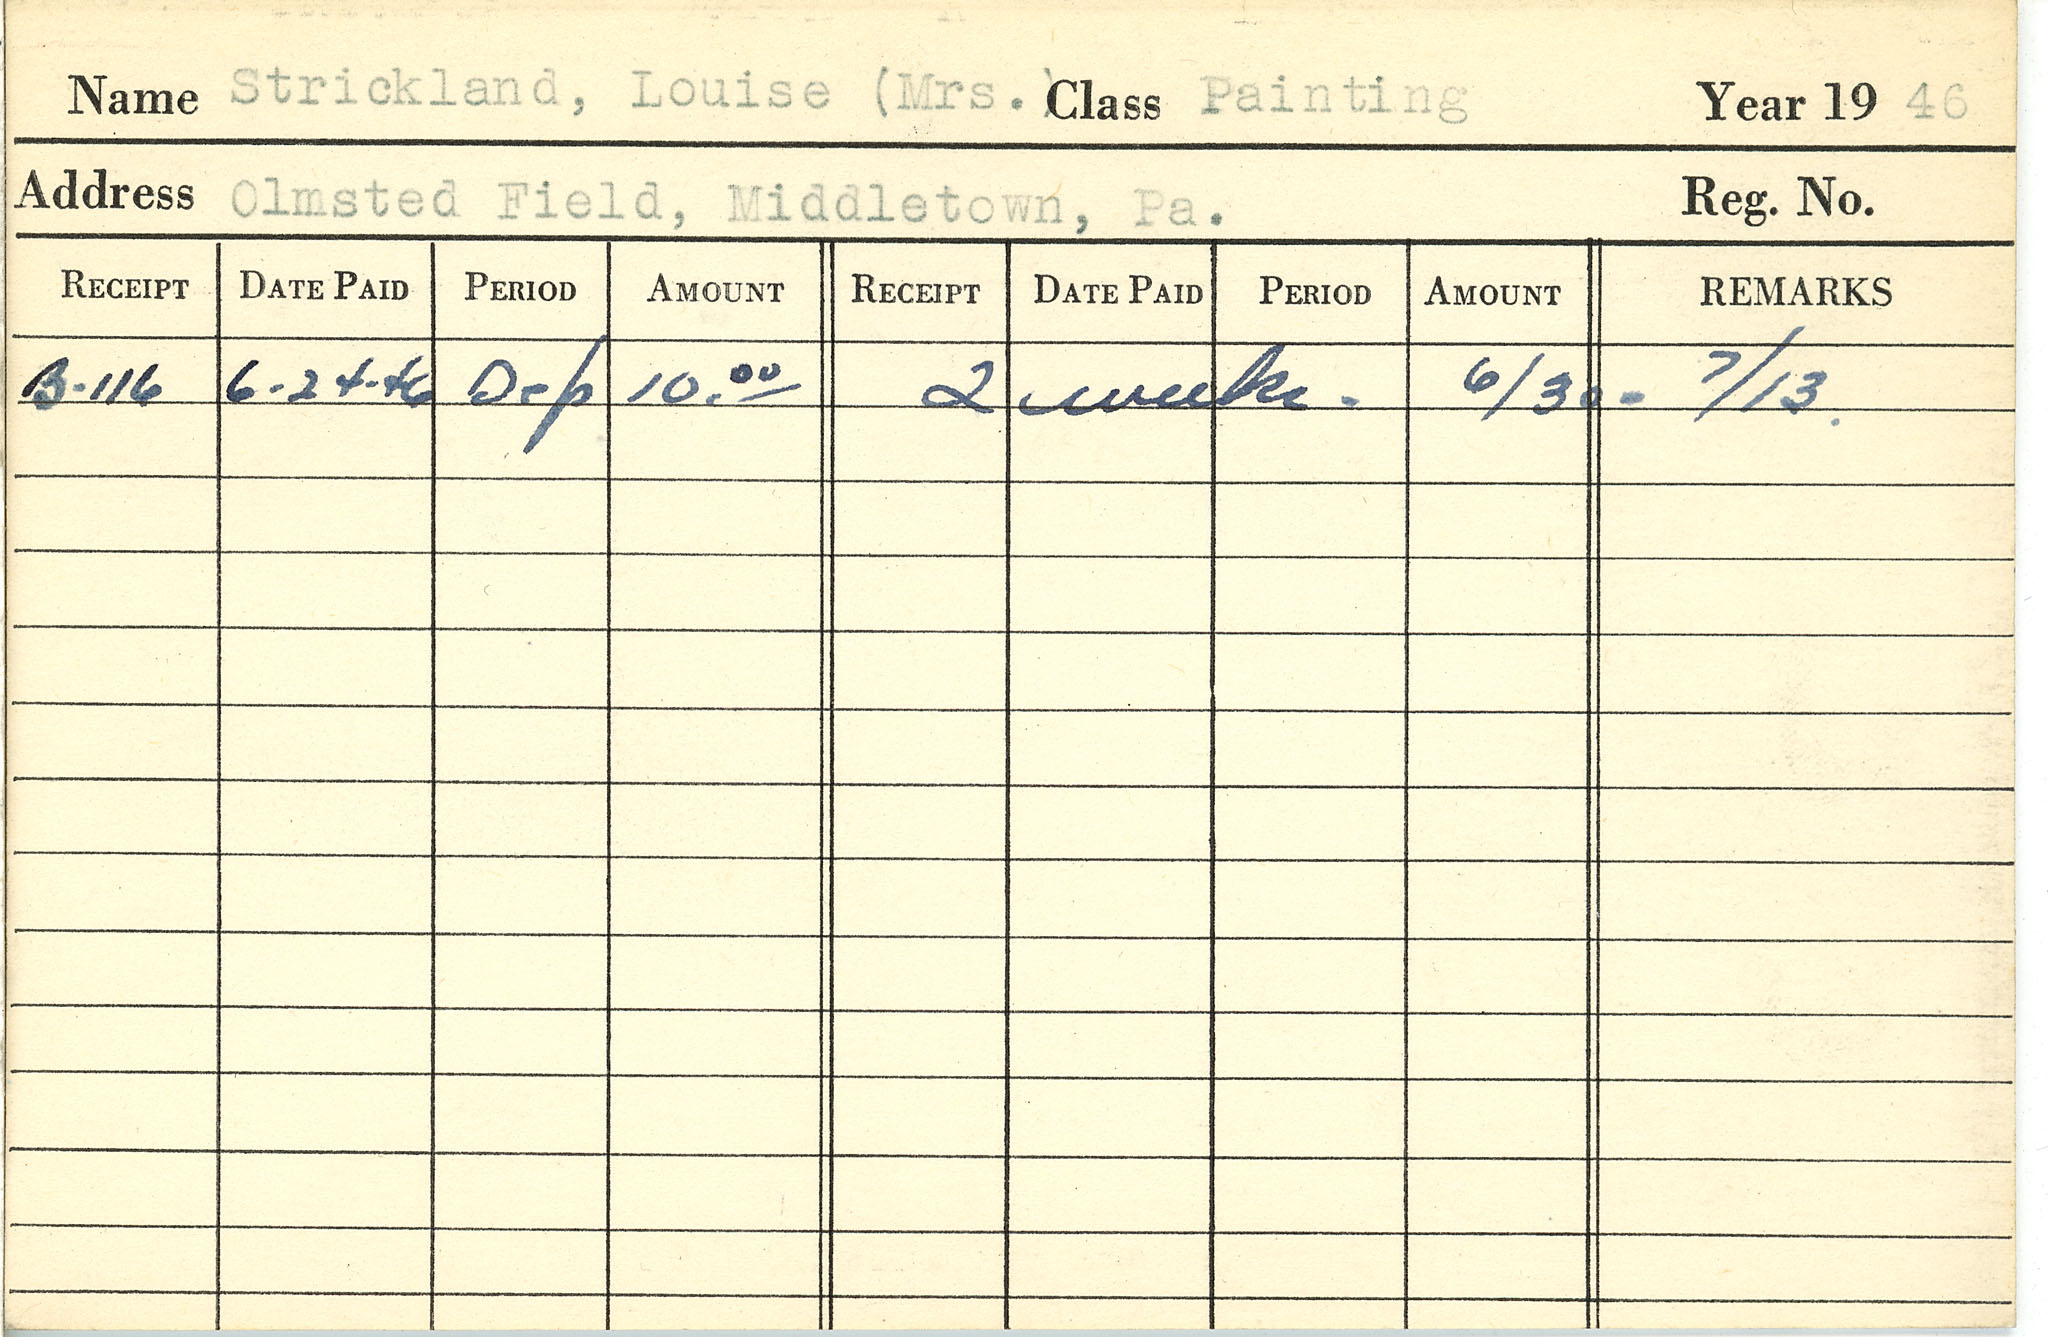 Name Strickland, Louise (Mrs.) Class Painting Year 19 46
Address Olmsted Field, Middletown, Pa. Reg. No.
RECEIPT DATE PAID PERIOD AMOUNT RECEIPT DATE PAID PERIOD AMOUNT REMARKS
B-116 6-24-46 Dep 10.00 2 weeks. 6/30 - 7/13.